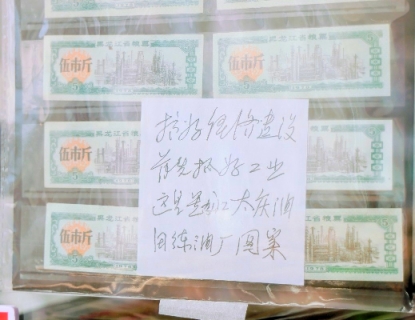 黑龙江省粮票
伍市斤
黑龙江省粮票
伍市斤
黑龙江省粮票
伍市斤
伍市斤
搞好经济建设
首先抓好工业
这是黑龙江大庆油
田炼油厂图案